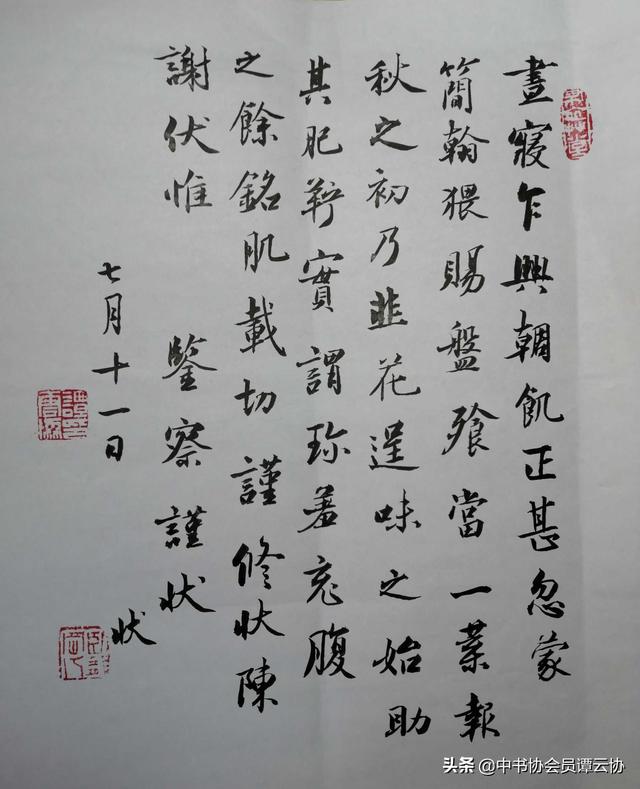 晝寢乍興輖飢正甚忽蒙
簡翰猥賜盤飱當一葉報
秋之初乃韭花逞味之始助
其肥羜實謂珍羞充腹
之餘銘肌載切謹修狀陳
謝伏惟 鑒察謹狀
七月十一日 狀
头条 @中书协会员谭云协